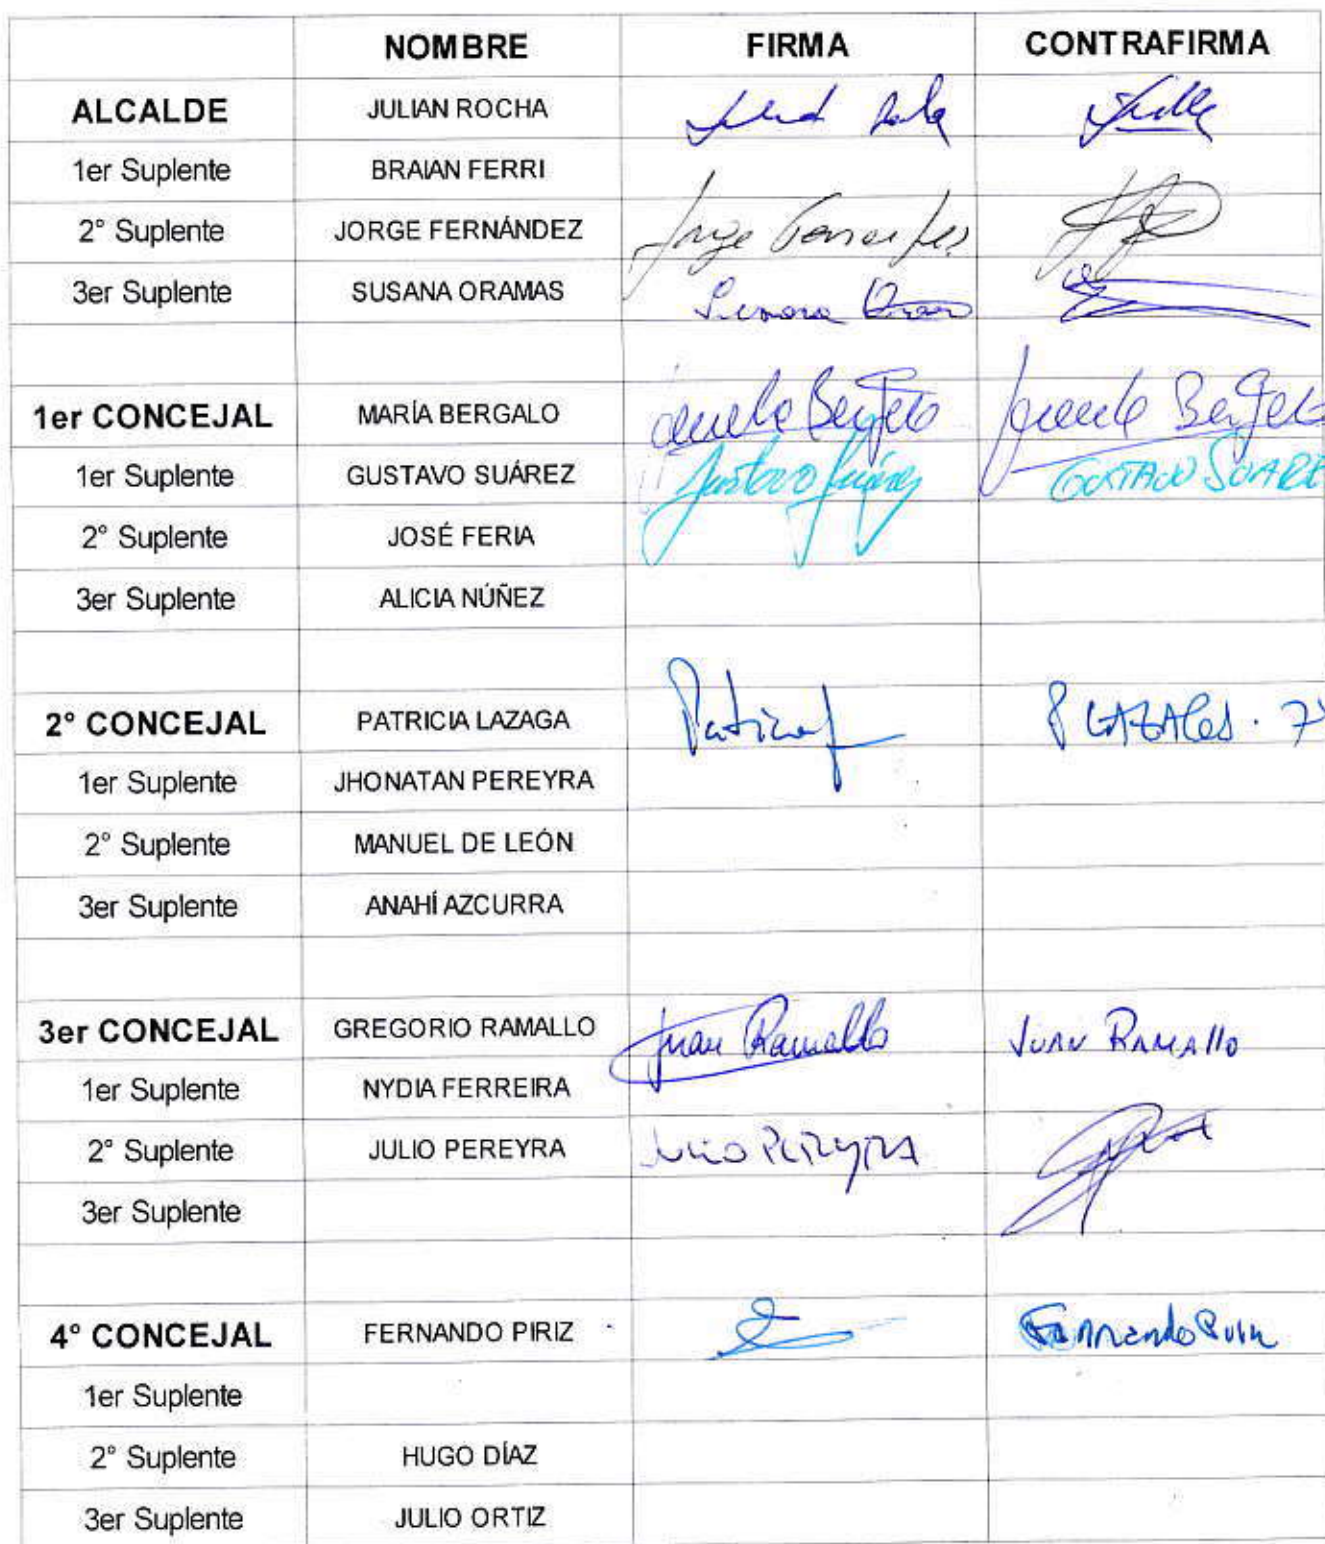 NOMBRE FIRMA CONTRAFIRMA
ALCALDE JULIAN ROCHA
1er Suplente BRAIAN FERRI
2° Suplente JORGE FERNÁNDEZ Jorge
3er Suplente SUSANA ORAMAS
1er CONCEJAL MARÍA BERGALO
1er Suplente GUSTAVO SUÁREZ Gustavo Suárez GUSTAVO SUARE
2° Suplente JOSÉ FERIA
3er Suplente ALICIA NÚÑEZ
2° CONCEJAL PATRICIA LAZAGA
1er Suplente JHONATAN PEREYRA
2° Suplente MANUEL DE LEÓN
3er Suplente ANAHÍ AZCURRA
3er CONCEJAL GREGORIO RAMALLO Juan Ramallo JUAN RAMALLO
1er Suplente NYDIA FERREIRA
2° Suplente JULIO PEREYRA JULIO PEREYRA
3er Suplente
4° CONCEJAL FERNANDO PIRIZ Fernando
1er Suplente
2° Suplente HUGO DÍAZ
3er Suplente JULIO ORTIZ